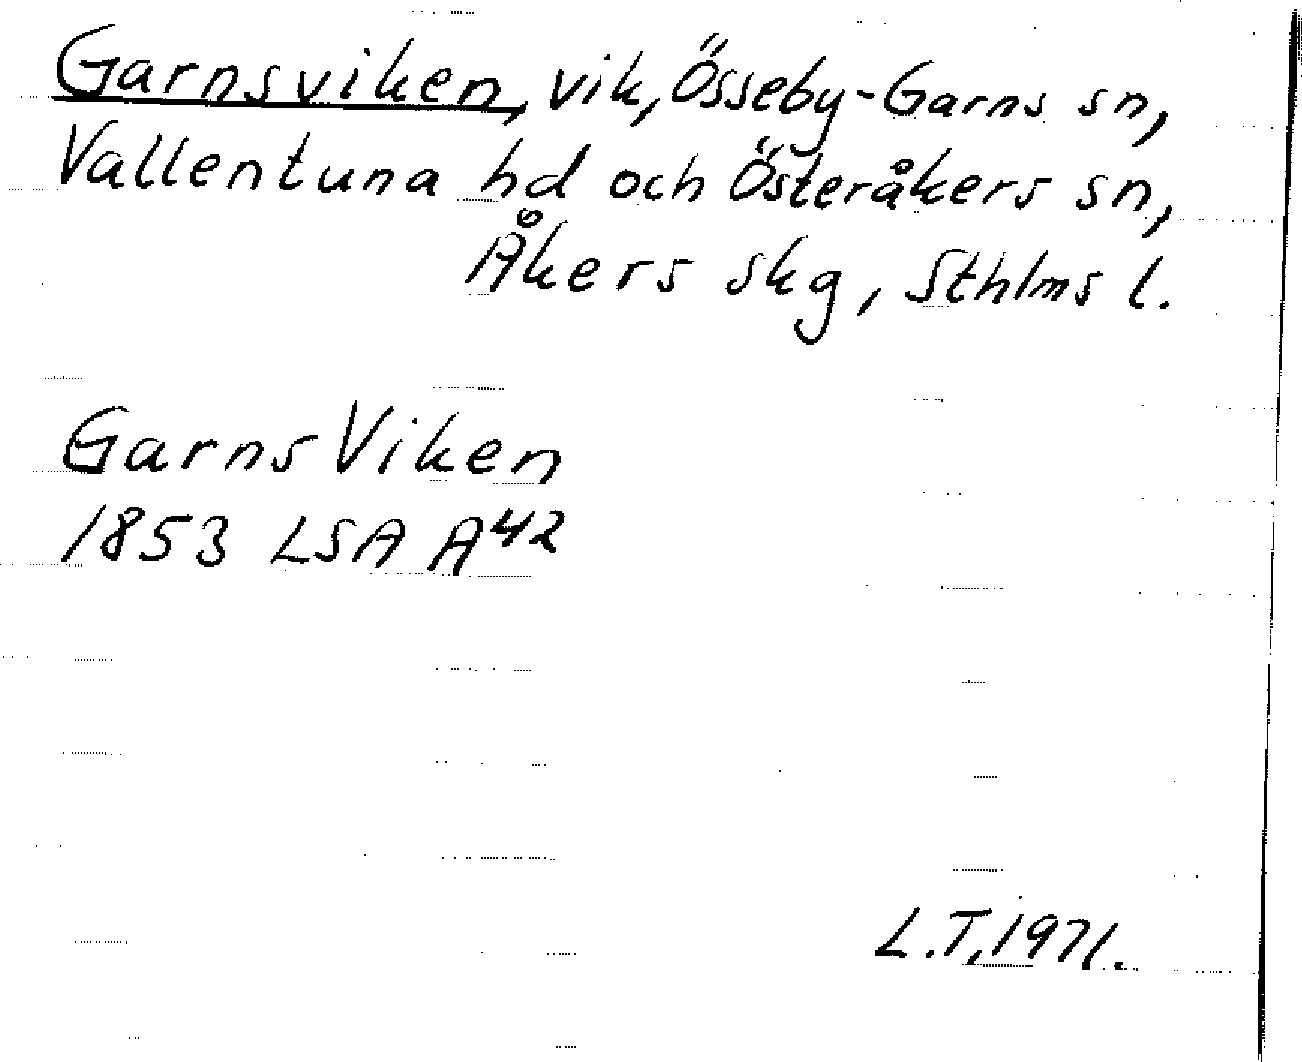 Garnsviken, vik, Össeby-Garns sn,
Vallentuna hd och Österåkers sn,
Åkers skg, Sthlms l.
Garns Viken
1853 LSA A42
L.T. 1971.